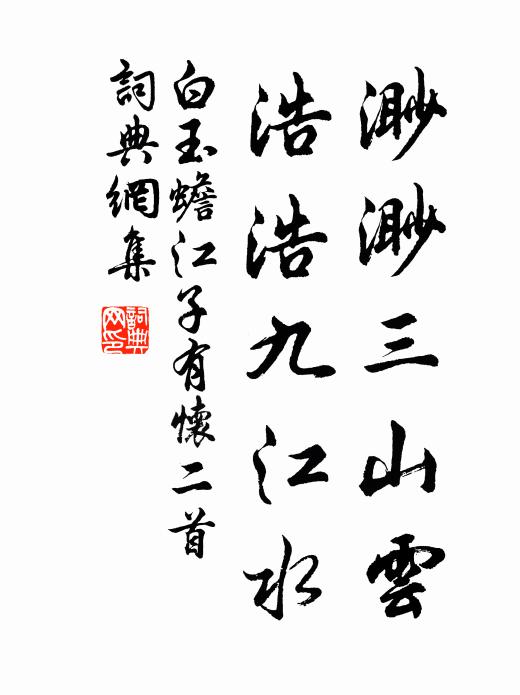 渺渺三山雲
浩浩九江水
白玉蟾江子有懷二首
詞典網集
詞典網印